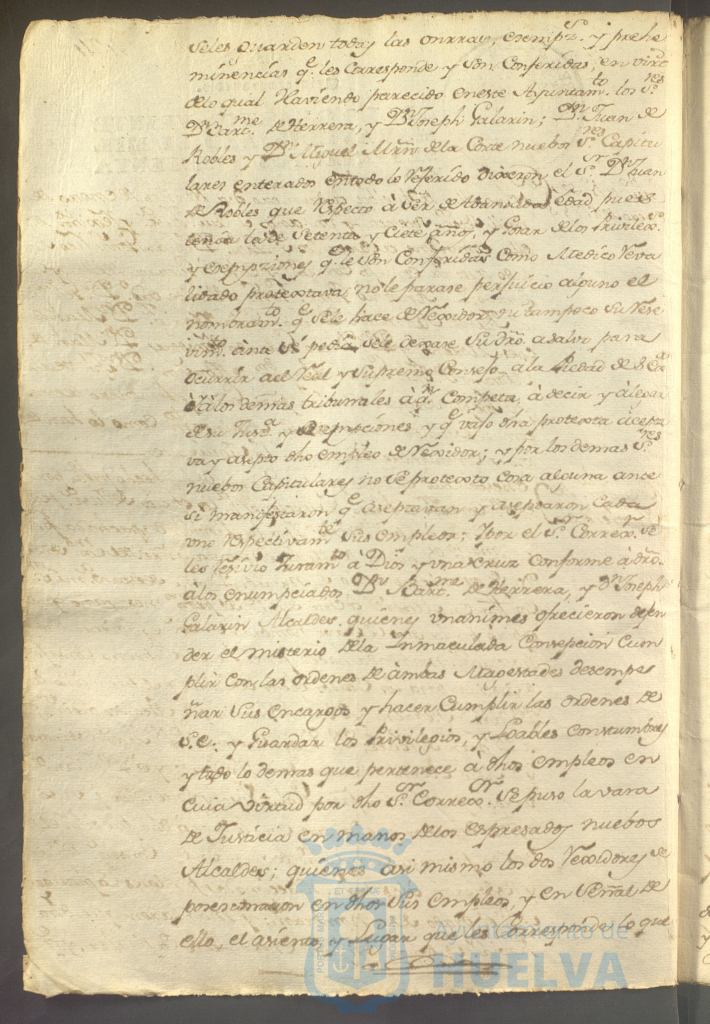 seles Guarden todas las onrras, exempz.s y prehe
minencias q.e les Corresponde y son Conferidas, en virt
delo qual Haviendo parecido eneste Ayuntam.to los S.res
D.n Bart.me de Herrera, y D.n Joseph Galarin; D.n Juan de
Robles y D.n Miguel Mrn dela Corte nuebos S.res Capitu
lares enterados entodo lo referido Dixeron el S.r D.n Juan
de Robles que respecto à ser de Abanzada edad pues
tenia la de setenta y Ciete años, y Gozar delos Privilex.s
y exempziones q.e le son Conferidas Como Medico Reva
lidado protextava nole parase perjuicio alguno el
nombram.to q.e sele hace de Rexidor, ni tampoco su Rese
vim.to ante si pedia sele dexase su dro. asalvo para
ocurrir ael Real y Supremo Consejo à la Piedad de S.Ex.a
ò àlos demas tribunales à q.n Competa, à decir y àlegar
de su Just.a y exempciones, y q.e vajo dha protexta acepta
va y asepto dho empleo de Rexidor; y por los demas S.res
nuebos Capitulares no se protexto cosa alguna ante
si manifestaron q.e aseptavan y aseptaron Cada
uno respectivam.te sus empleos; Y por el S.r Correx.r se
les resivio Juram.to à Dios y una Cruz conforme à dro.
àlos enumpciados D.n Bart.me de Herrera, y D.n Joseph
Galarin Alcaldes quienes unanimes ofrecieron defen
der el misterio dela Inmaculada Consepcion Cum
plir con las ordenes de àmbas Magestades desempe
ñar sus encargos y hacer Cumplir las ordenes de
S.E. y Guardar los Privilegios, y Loables Constumbres
y todo lo demas que pertenece à dhos empleos en
Cuia virtud por dho S.r Correx.r se puso la vara
de Justicia en manos delos expresados nuebos
Alcaldes; quienes asi mismo los dos Rexidores se
posesionaron en dhos sus empleos, y en señal de
ello, el asiento, y Lugar que les Corresponde lo que
Ayuntamiento de
HUELVA